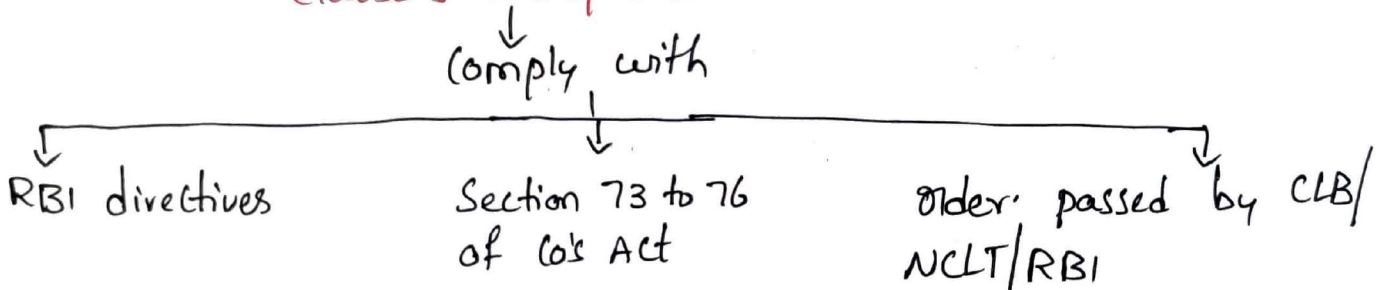 Comply with
RBI directives
Section 73 to 76
of Co's Act
order. passed by CLB/
NCLT/RBI